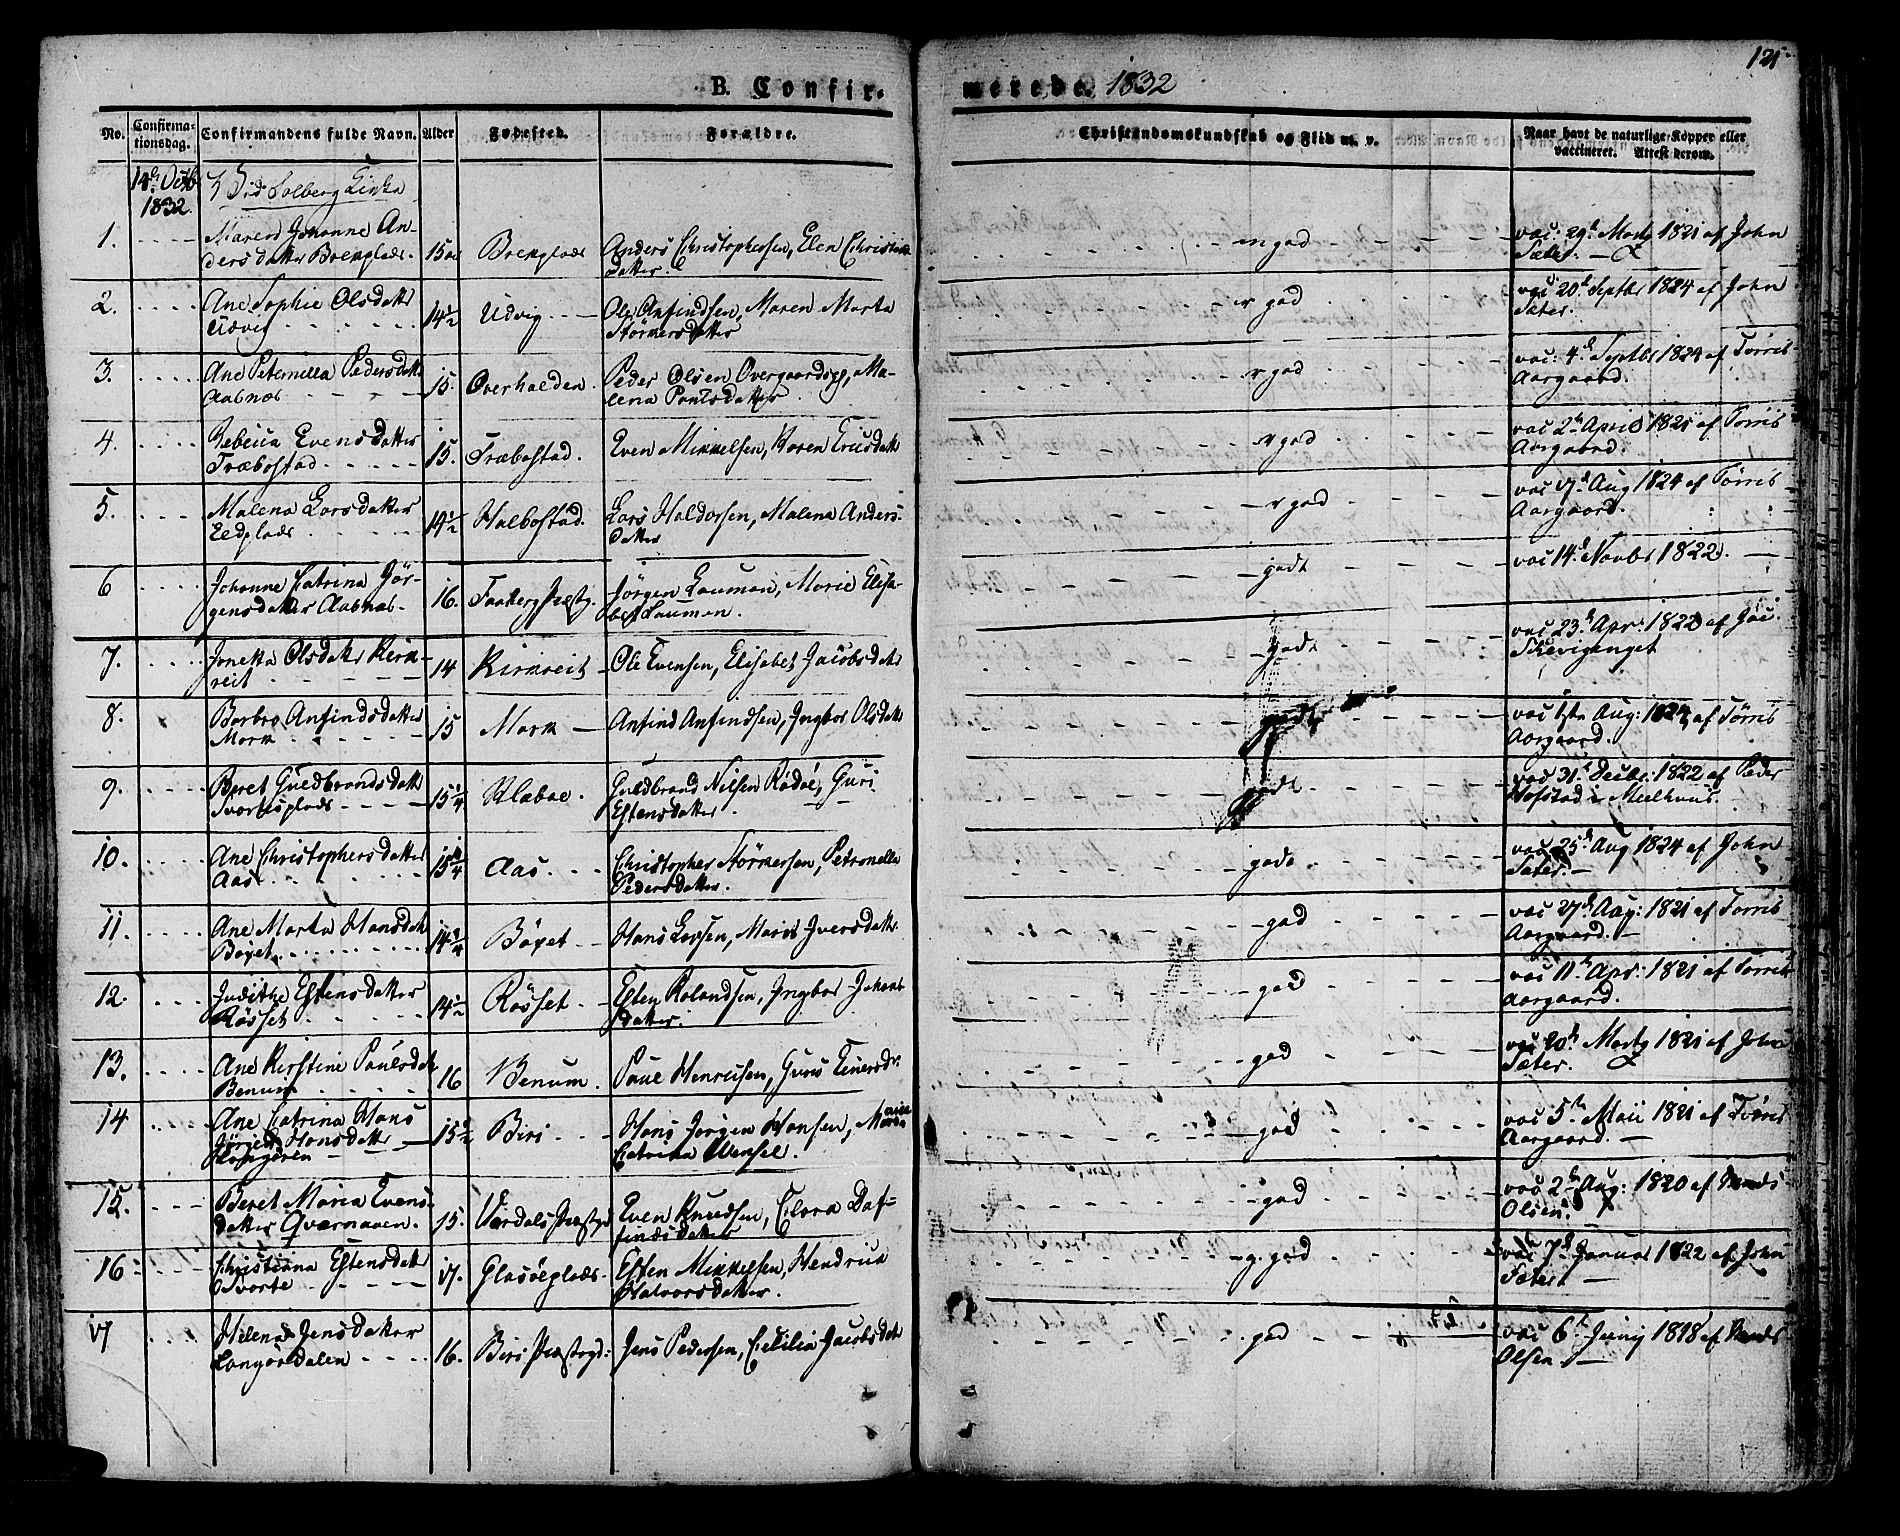 125.
B. Confirmerede 1832
No. Confirmationsdag. Confirmandens fulde Navn. Alder Fødested. Forældre. Christendomskundskab og Flid m. v. Naar havt de naturlige Kopper eller vaccineret. Attest derom.
14de Octb 1832. Solberg Kirke
1. Maren Johanne An-
dersdatter 15 Anders Christophersen, Elen Christians
datter. m god vac: 29de Marty 1821 af John
Sæter.
2. Ane Sophie Olsdatter
Udvig 14 1/2 Udvig Ole Anfindsen, Maren Marta
Størkersdatter god vac: 20de Septbr 1824 af John
Sæter.
3. Ane Peternella Pedersdatter
Aabnæs 15. Overhalden. Peder Olsen Overgaard, Ma-
lena Paulsdatter. god vac: 4de Septbr 1824 af Tørris
Aargaard.
4. Rebecca Evensdatter
Træbostad 15. Træbostad. Even Mikkelsen, Karen Ericsdatter god vac 2de April 1821 af Tørris
Aargaard.
5. Malena Larsdatter
14 1/2 Halbostad. Lars Haldorsen, Malena Anders-
datter god vac 17de Aug 1824 af Tørris
Aargaard.
6 Johanne Catrina Jör-
gensdatter Aabnæs 16. Jörgen Lauman, Marie Elisa-
bet Lauman. godt vac 14de Novbr 1822.
7. Jonetta Olsdatter Kirk-
reit 14 Kirkreit Ole Evensen, Elisabet Jacobsdatter godt vac: 23de Apr: 1822 af Jac:
8. Barbro Anfindsdatter
Mork 15 Mork Anfind Anfindsen, Ingbor Olsdatter godt vac Aug: 1824 af Tørris
Aargaard.
9. Beret Guldbrandsdatter
15 1/4 Klæboe. Guldbrand Nilsen Rödöe, Guri
Estensdatter. godt vac: 31te Decbr: 1822 af Peder
Hofstad i Meelhuus.
10. Ane Christophersdatter
Aas 15 3/4 Aas. Christopher Størkersen, Petronella
Pedersdatter. godt vac 25de Aug 1824 af John
Sæter.
11. Ane Marta Hansdatter
Böxet 14 3/4 Böxet Hans Larsen, Marit Iversdatter god vac 27de Aug: 1821 af Tørris
Aargaard.
12. Judithe Estensdatter
Rösset 14 1/2 Rösset Esten Rolandsen, Ingbor Johans-
datter. god vac 11te Apr: 1821 af Tørris
Aargaard.
13. Ane Kirstine Paulsdatter
Benum 16 Benum. Paul Henricsen, god vac 20de Marty 1821 af John
Sæter.
14 Ane Catrina Hans
Jörgen Hansdatter
15 1/2 Biri Hans Jörgen Hansen, Maria
Catrina Wensel. god vac 5te Maii 1821 af Tørris
Aargaard.
15. Beret Maria Evens-
datter Qvernaven. 15. Værdals Præstegd Even Knudsen, Clora Daf-
findsdatter god vac 2de Aug: 1820 af
Olsen.
16 Christiana Estensdatter
17. Glasöeplads Esten Mikkelsen, Hendrica
Halvorsdatter. g. god vac 7de Januar 1822 af John
Sæter.
17 Helena Jensdatter
Langöredalen 16. Biri Præstegd: Jens Pedersen, Cecilia Jacobsdatter god vac 6te Juny 1818 af
Olsen.